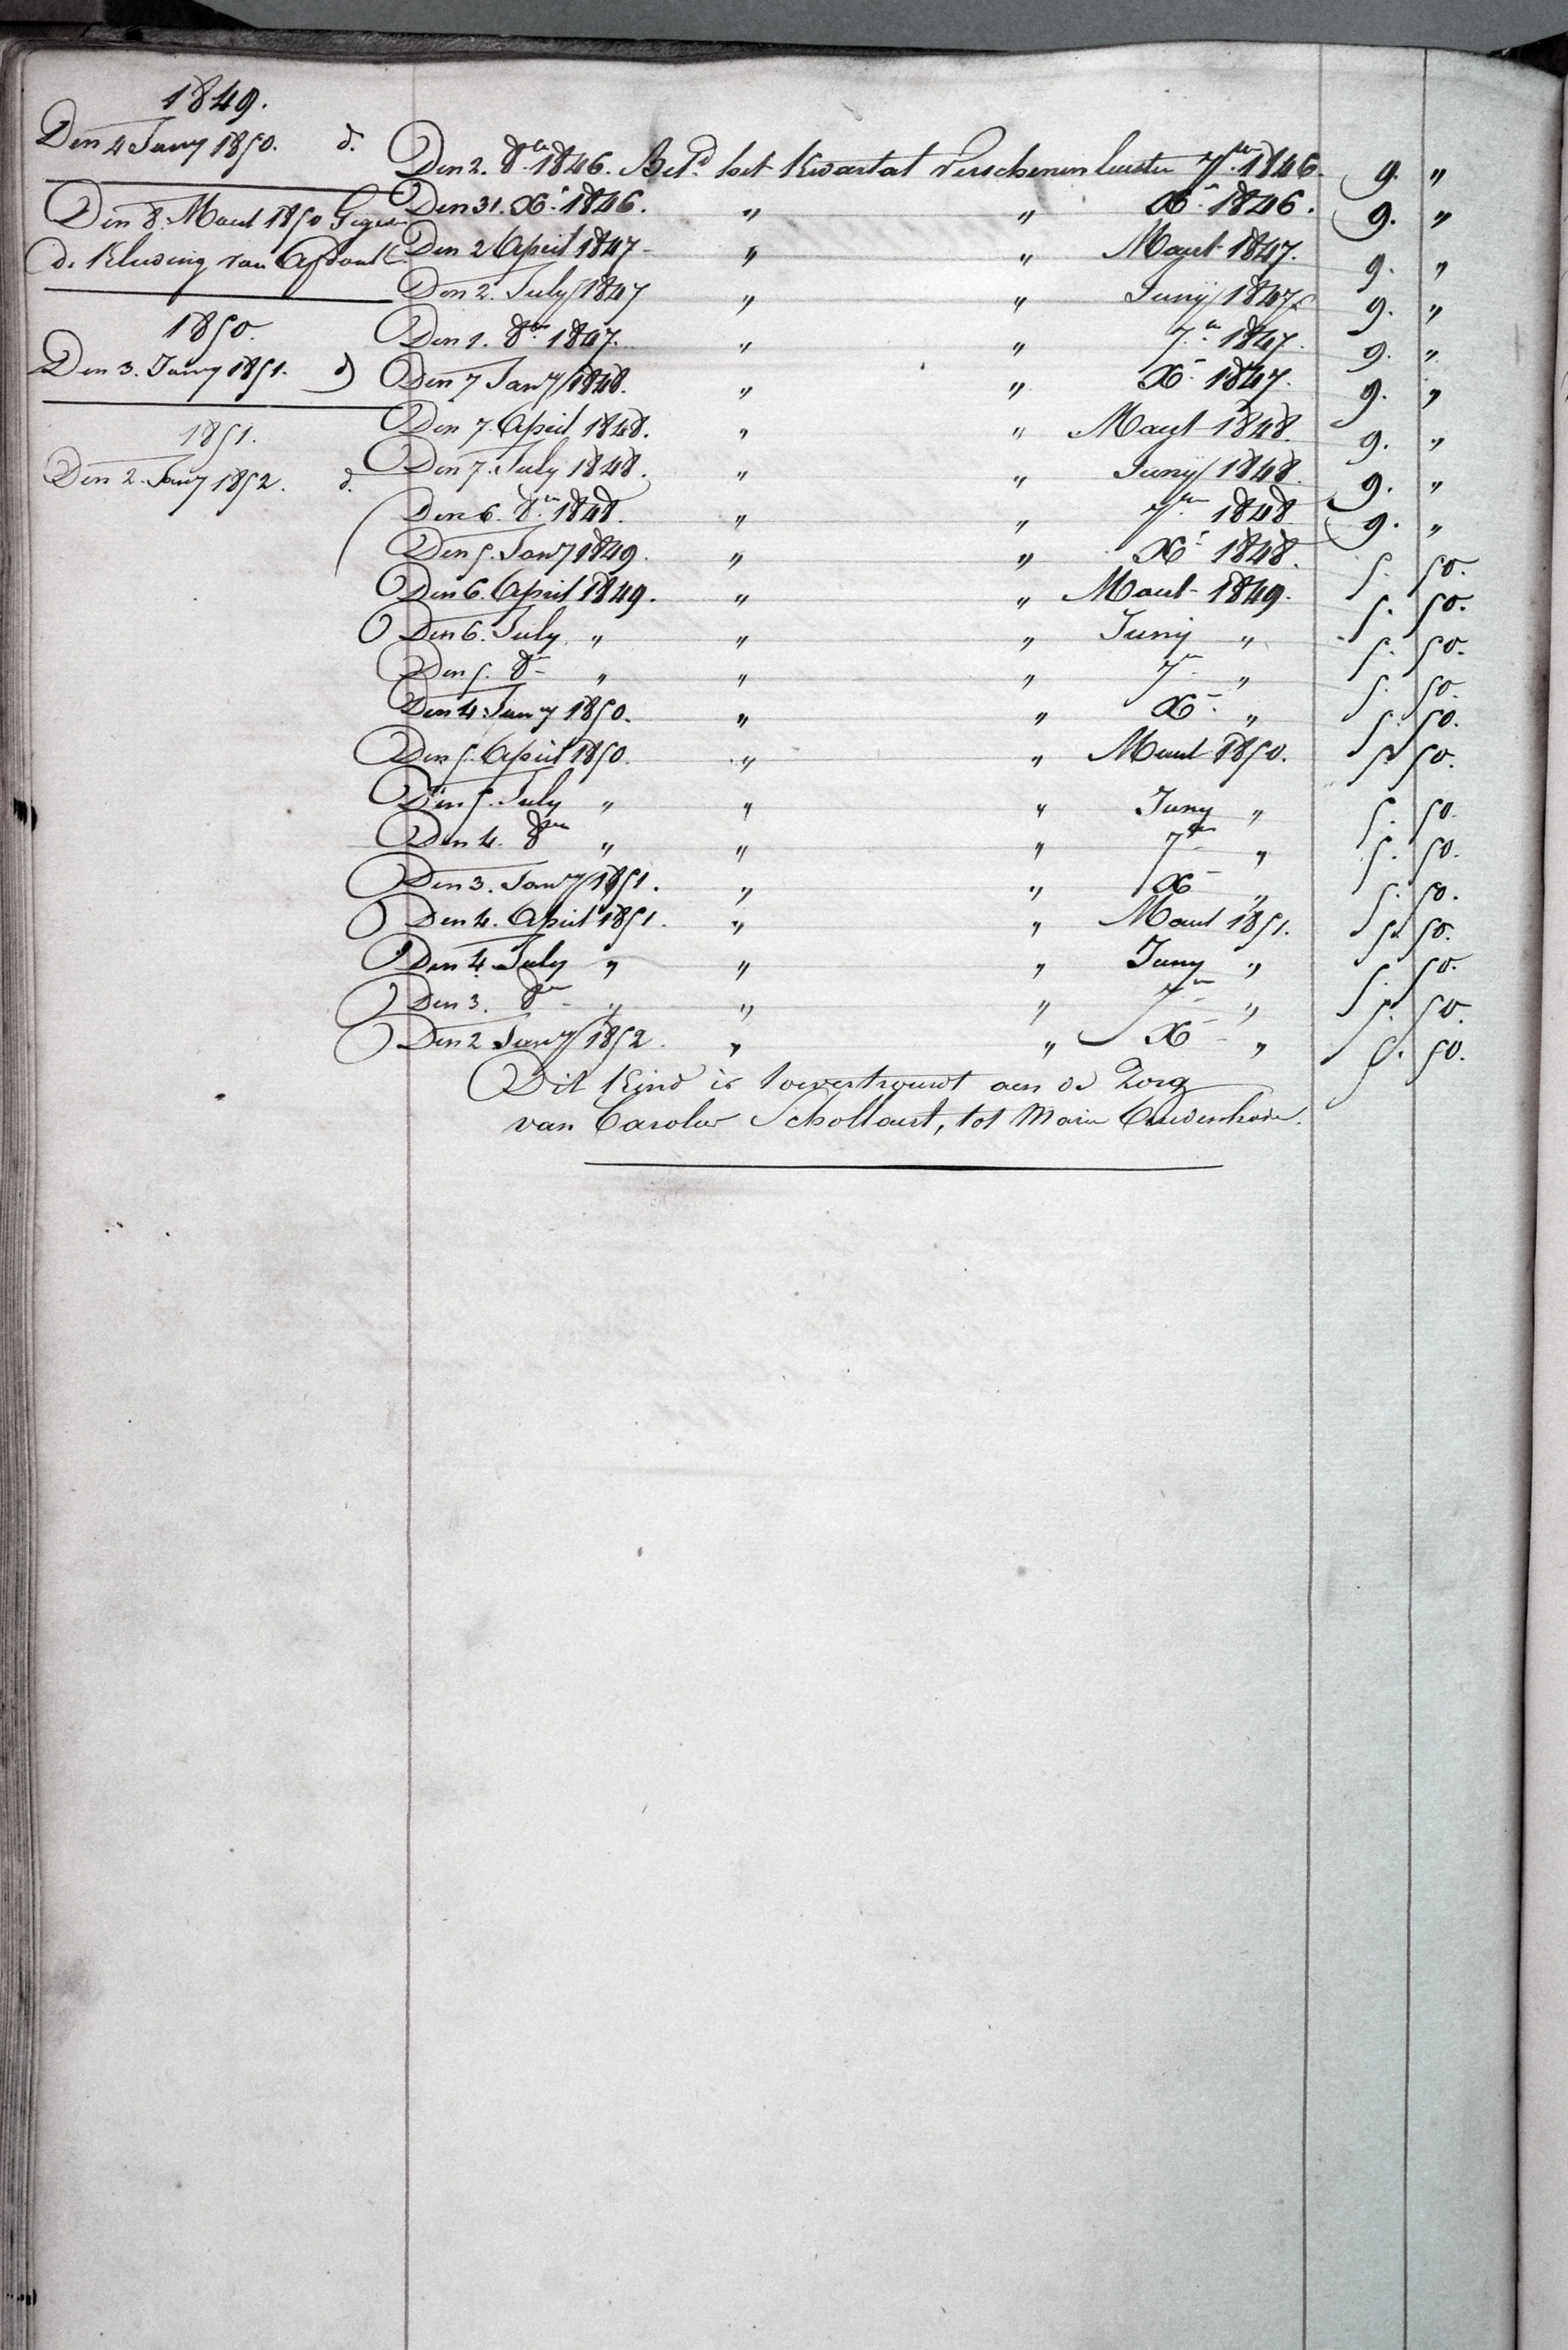 1849.
Den 4 Jany 1850. d.
Den 8. Maert 1850 Gegeven
d. Kleeding van
1850.
Den 3. Jany 1851. d
1851.
Den 2. Jany 1852. d.
Den 2. 8br 1846. Betd het Kwartal Verschenen leesten 7ber 1846. 9. "
Den 31. Xb. 1846. " " Xb. 1846. 9. "
Den 2 April 1847 - " " Maert 1847. 9. "
Den 2. July 1847 " " Junij 1847 9. "
Den 1. 8br 1847. " " 7br 1847. 9. "
Den 7 Jany 1848. " " Xb. 1847. 9. "
Den 7. April 1848. " " Maert 1848. 9. "
Den 7. July 1848. " " Junij 1848. 9. "
Den 6. 8br 1848. " " 7ber 1848 9. "
Den 5. Jany 1849. " " Xb. 1848. 5. 50.
Den 6. April 1849. " " Maert 1849. 5. 50.
Den 6. July " " " Junij " 5. 50.
Den 5. 8br " " " 7br " 5. 50.
Den 4 Jany 1850. " " Xb. " 5. 50.
Den 5. April 1850. " " Maert 1850. 5. 50.
Den 5. July " " " Juny " 5. 50.
Den 4. 8ber " " " 7ber " 5. 50.
Den 3. Jany 1851. " " Xb " 5. 50.
Den 4. April 1851. " " Maert 1851. 5. 50.
Den 4. July " " " Juny " 5. 50.
Den 3. 8br " " " 7br " 5. 50.
Den 2 Jany 1852. " " Xb " 5. 50.
Dit Kind is toevertrouwt aen de Zorg
van Carolus Schollaert, tot Maria